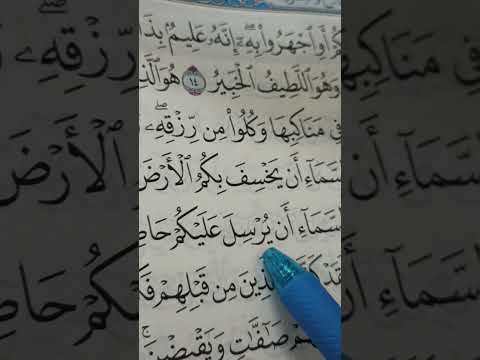 أَوِ ٱجْهَرُوا۟ بِهِۦٓ إِنَّهُۥ عَلِيمٌۢ بِذَا
وَهُوَ ٱللَّطِيفُ ٱلْخَبِيرُ ١٤ هُوَ ٱلَّذ
فِى مَنَاكِبِهَا وَكُلُوا۟ مِن رِّزْقِهِۦۖ
لسَّمَآءِ أَن يَخْسِفَ بِكُمُ ٱلْأَرْضَ
لسَّمَآءِ أَن يُرْسِلَ عَلَيْكُمْ حَاص
ذِينَ مِن قَبْلِهِمْ فَك
صَٰٓفَّٰتٍ وَيَقْبِضْنَۚ